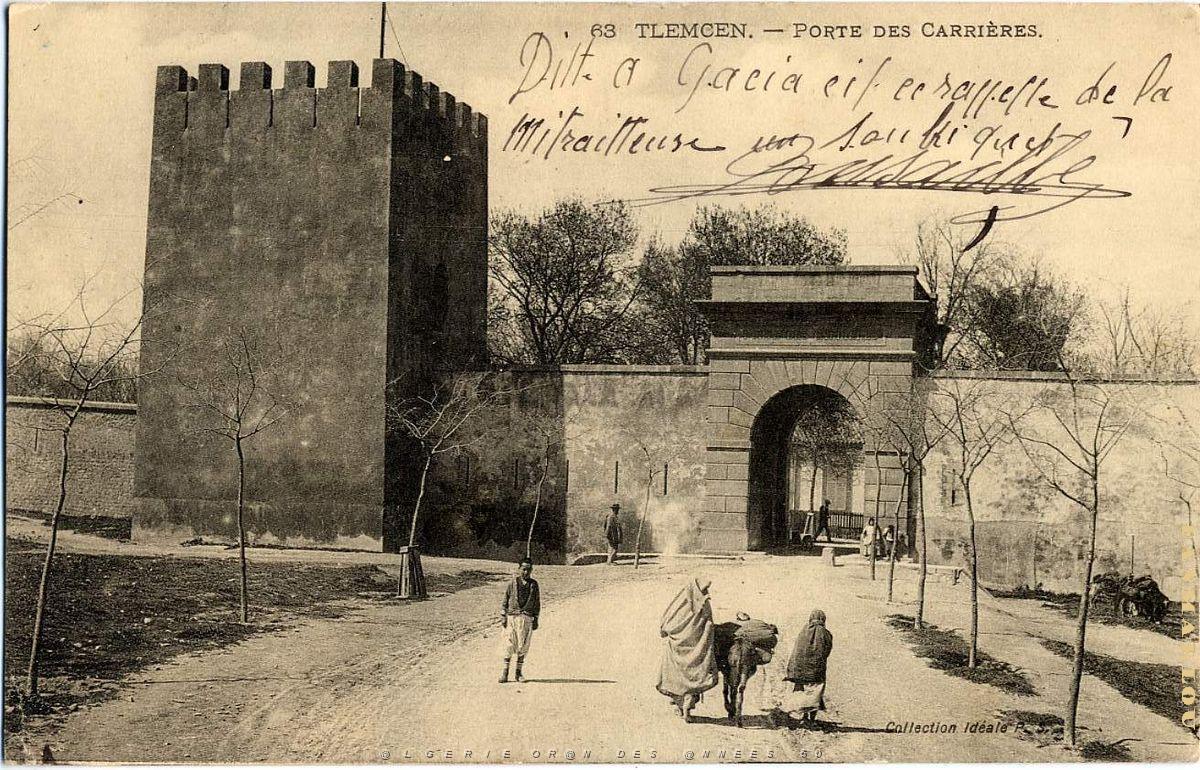 63 TLEMCEN. — PORTE DES CARRIÈRES.
Dite a Gacia cil ce rappelle de la
Mitrailleuse un soubriquet
Collection Idéale P. S.
@LGERIE OR@N DES @NNEES 50